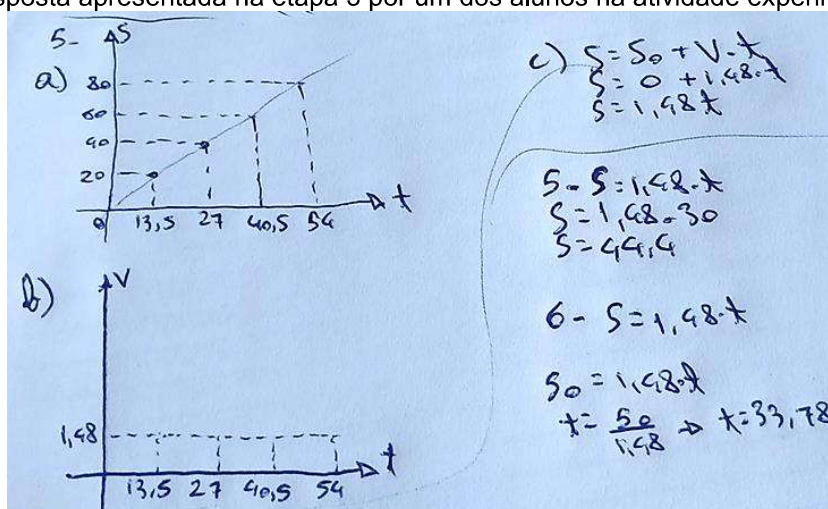 sposta apresentada na etapa 5 por um dos alunos na atividade experi
5-
S
a)
80
60
40
20
0
13,5 27 40,5 54
t
b)
V
1,48
13,5 27 40,5 54
t
c) S = S0 + V.t
S = 0 + 1,48.t
S = 1,48t
5 - S = 1,48.t
S = 1,48.30
S = 44,4
6 - S = 1,48.t
50 = 1,48.t
t = 50/1,48 → t = 33,78